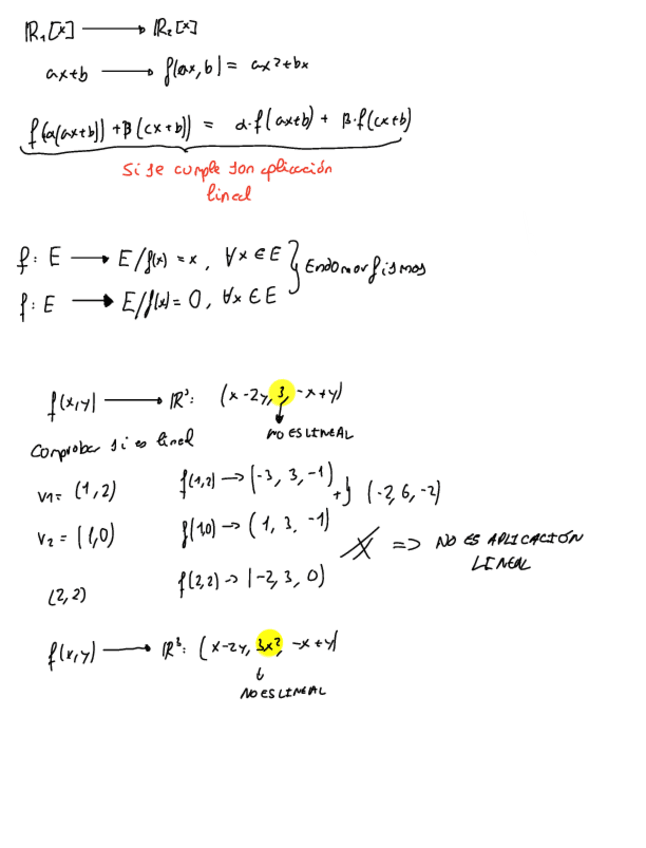 ℝ₁[x] ⟶ ℝ₂[x]
ax+b ⟶ f(ax,b) = ax²+bx
f(α(ax+b)) + β(cx+b)) = α·f(ax+b) + β·f(cx+b)
Si se cumple son aplicación
lineal
f: E ⟶ E/f(x) = x, ∀x ∈ E
f: E ⟶ E/f(x) = 0, ∀x ∈ E } Endomorfismos
f(x,y) ⟶ ℝ³: (x-2y, 3, -x+y)
NO ES LINEAL
Comprobar si es lineal
v₁= (1,2) f(1,2) → (-3, 3, -1)
+} (-2, 6, -2)
v₂ = (1,0) f(1,0) → (1, 3, -1)
X ⇒ NO ES APLICACIÓN
LINEAL
(2,2) f(2,2) → (-2, 3, 0)
f(x,y) ⟶ ℝ³: (x-2y, 3x², -x+y)
NO ES LINEAL